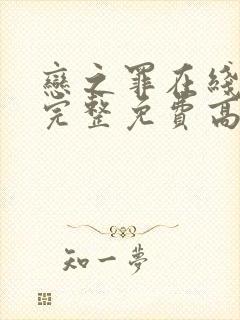 戀之罪在綫
完整免費高
知一夢